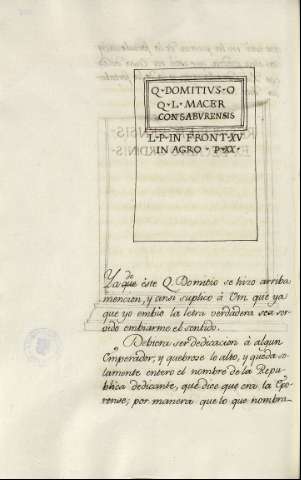 Q·DOMITIVS·Q
Q·L·MACER
CONSABVRENSIS
L·P·IN FRONT·XV
IN AGRO·P·XX·
Ya de
que éste Q. Domitio se hizo arriba
mencion, y ansi suplico á Vm que ya
que yo embio la letra verdadera sea ser-
vido embiarme el sentido.
Debiera ser dedicacion à algun
Emperador, y quebrose lo alto, y queda so-
lamente entero el nombre de la Repu-
blica dedicante, que dice que era la Epo-
rense; por manera que lo que nombra-